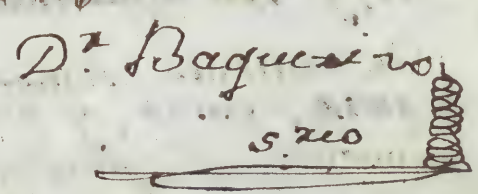 D.r Baqueiro
s.rio